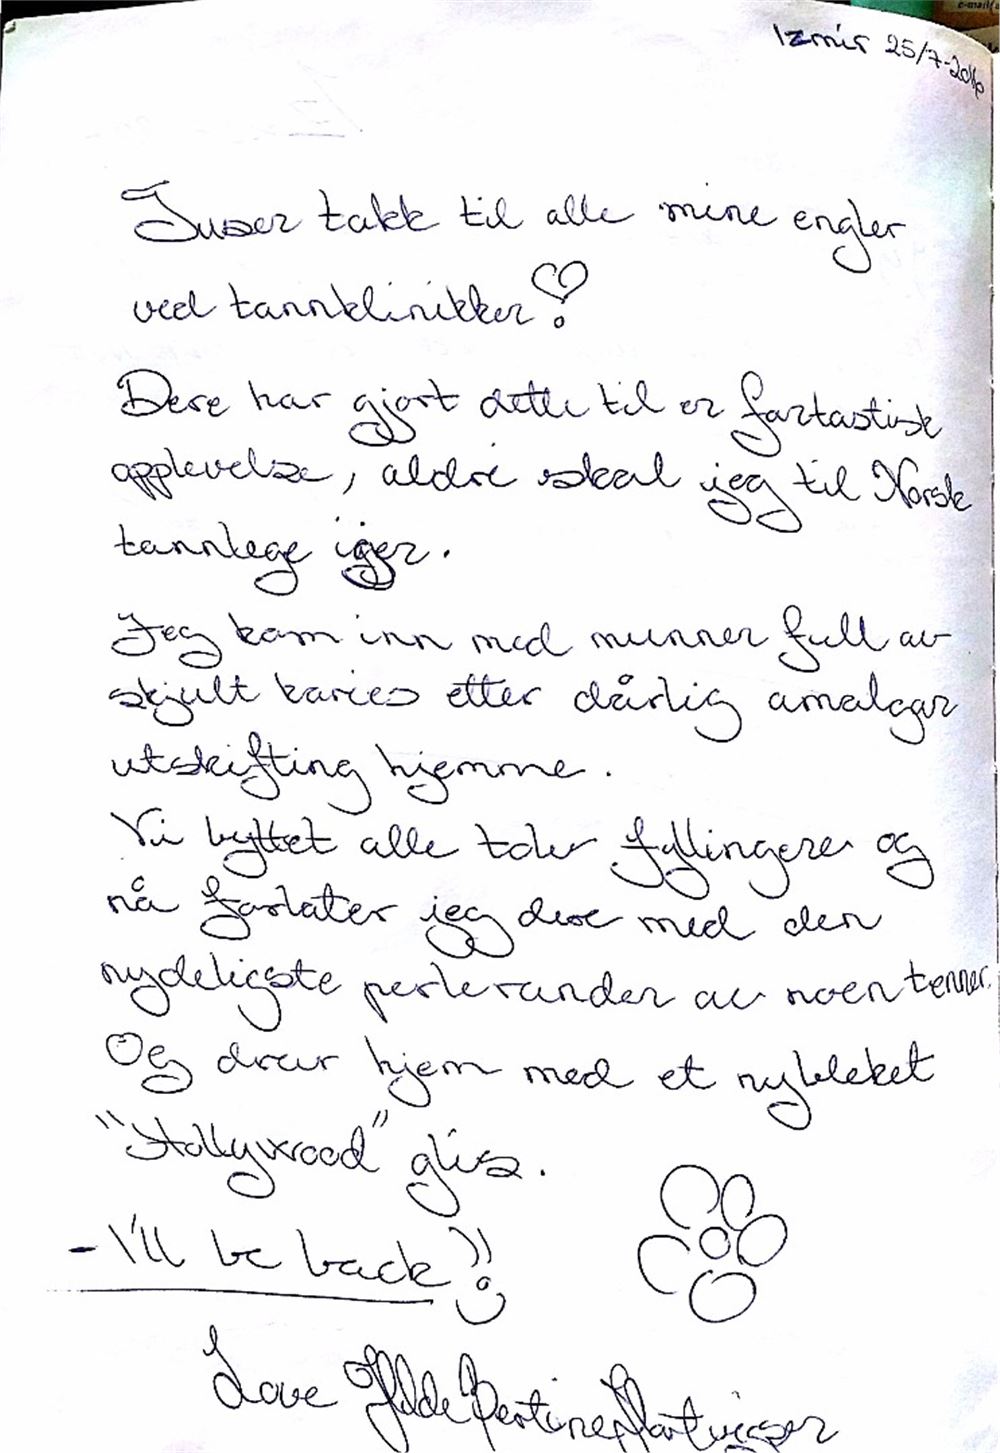 Izmir 25/7-2016
Tusen takk til alle mine engler
ved tannklinikken!
Dere har gjort dette til en fantastisk
opplevelse, aldri skal jeg til Norsk
tannlege igjen.
Jeg kom inn med munnen full av
skjult karies etter dårlig amalgan
utskifting hjemme.
Vi byttet alle fyllingene og
nå forlater jeg dere med den
nydeligste perleranden av noen tenner.
Og drar hjem med et nybleket
"Hollywood" glis.
- I'll be back!!
Love Hilde